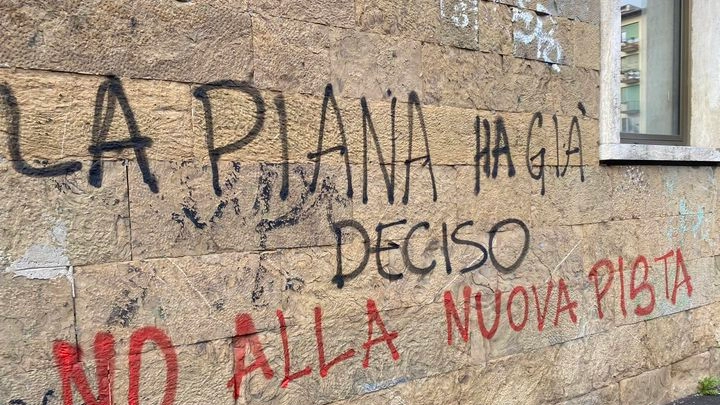 LA PIANA HA GIÀ
DECISO
NO ALLA NUOVA PISTA